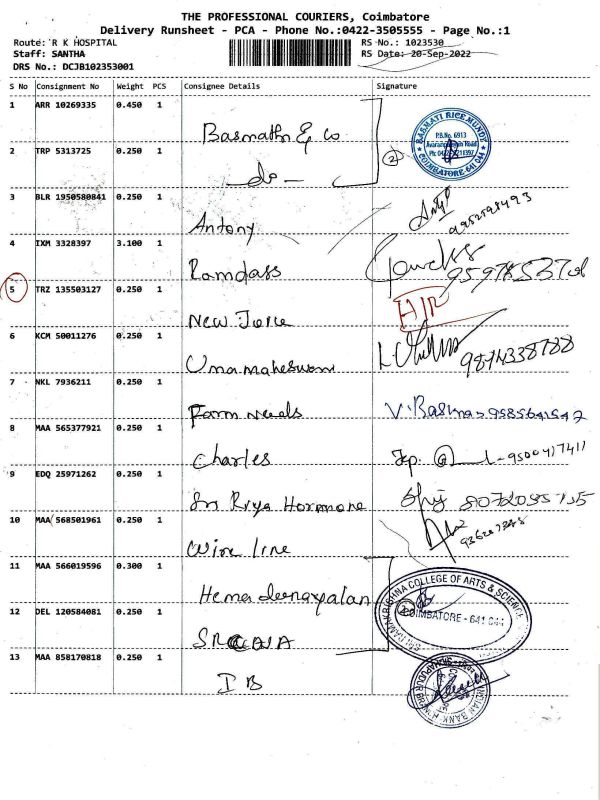 THE PROFESSIONAL COURIERS, Coimbatore
Delivery Runsheet - PCA - Phone No.:0422-3505555 - Page No.:1
Route: R K HOSPITAL
RS No.: 1023530
Staff: SANTHA
RS Date: 20-Sep-2022
DRS No.: DCJB102353001
S No Consignment No Weight PCS Consignee Details Signature
1 ARR 10269335 0.450 1
Basmathi & Co
BASMATI RICE MUNDY
P.B.No. 6913
COIMBATORE 641 044
2
2 TRP 5313725 0.250 1
-do-
3 BLR 1950580841 0.250 1
Antony
9952598493
4 IXM 3328397 3.100 1
Ramdass
5 TRZ 135503127 0.250 1
New Force
6 KCM 50011276 0.250 1
Umamaheswari
9874338788
7 NKL 7936211 0.250 1
Farm needs
8 MAA 565377921 0.250 1
Charles
9500417411
9 EDQ 25971262 0.250 1
Sri Priya Hormone
10 MAA 568501961 0.250 1
Wire line
11 MAA 566019596 0.300 1
Hema deenayalan
SRI RAMAKRISHNA COLLEGE OF ARTS & SCIENCE
COIMBATORE - 641 044
12 DEL 120584081 0.250 1
13 MAA 858170818 0.250 1
I B
INDIAN BANK